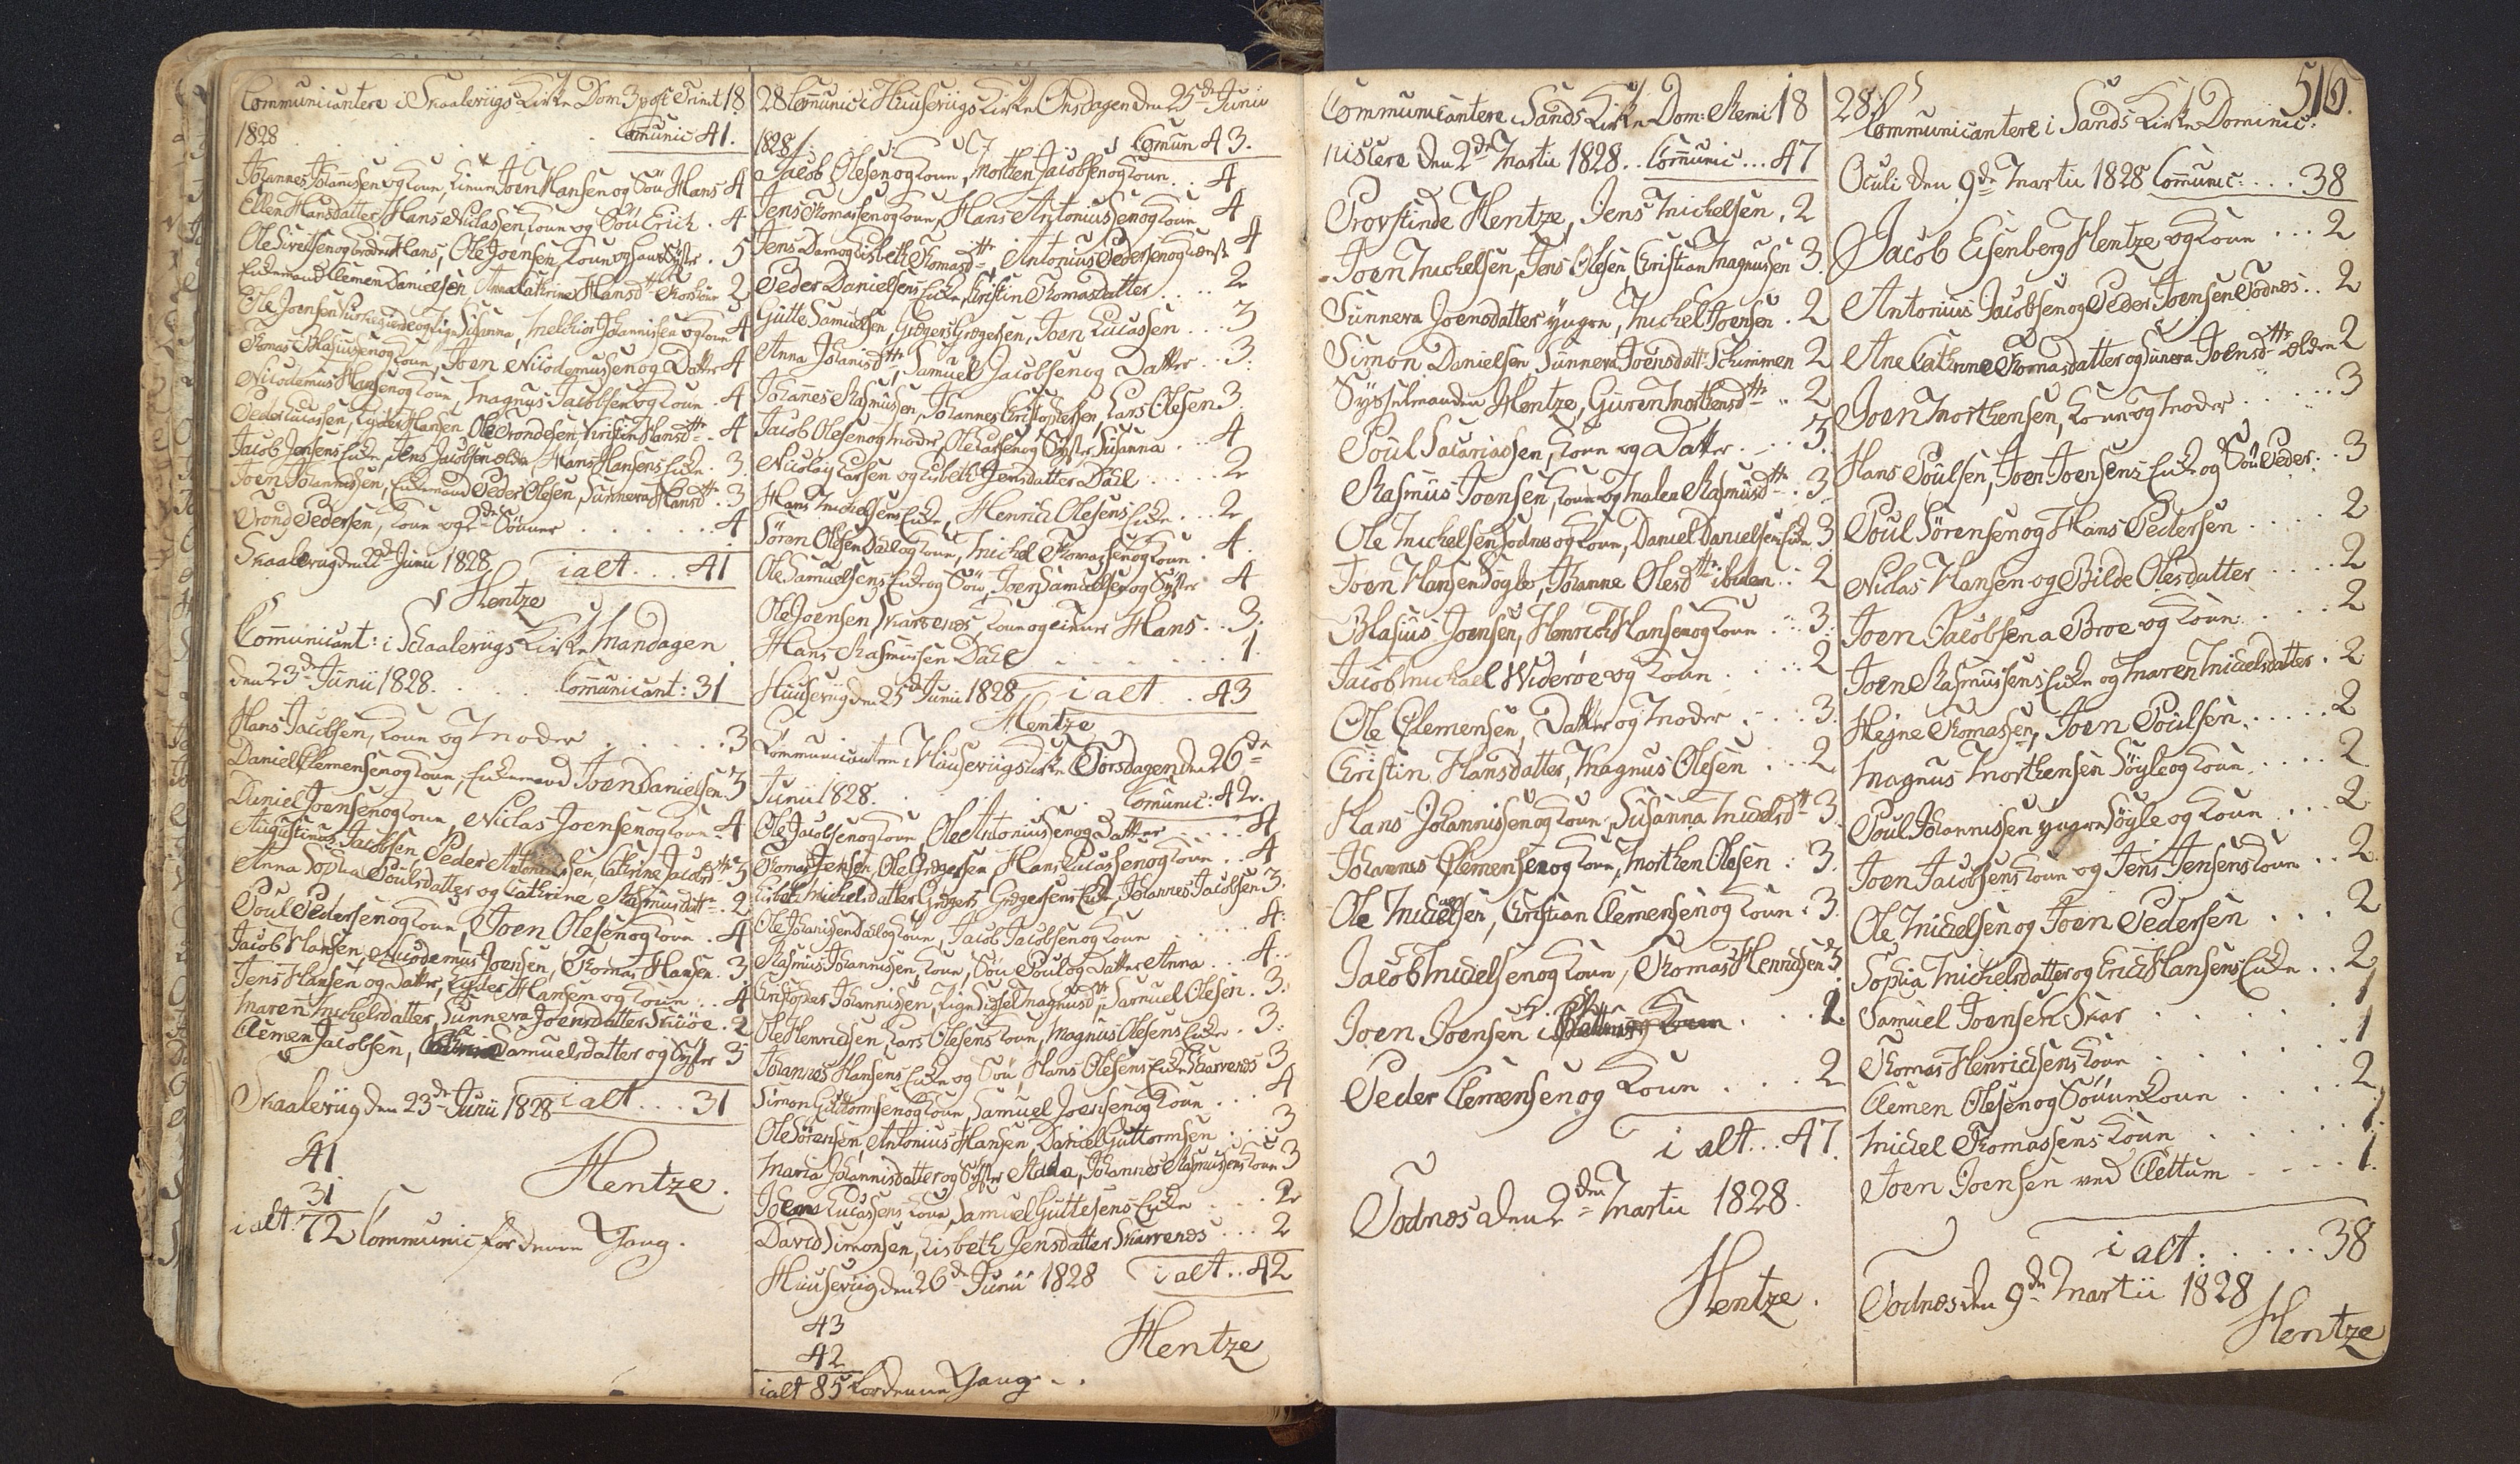 Communicantere i Skaalevigs Kirke Dom 3 post Trinit 18
1828 . . . Comunic 41.
Johannes Johannesen og Kone, hiemme Joen Hansen og Søn Hans 4
Ellen Hansdatter, Hans Niclassen, Kone og Søn Erich . 4
Ole Sivertsen og broder Hans, Ole Joensen, Kone og hans Syster . 5
Enkemand Clemen Danielsen Anna Cathrine Hansdttr 2
Ole Joensen og Pige Susanna, Melchior Johannisen og Kone 4
Thomas Blasiusen og Kone, Joen Nicodemusen og Datter 4
Nicodemus Hansen og Kone, Magnus Jacobsen og Kone . 4
Peder Lucassen, Lyder Hansen Ole Trondesen, Kirstin Hansdttr . 4
Jacob Jensens Enke, Jens Jacobsen ældre Hans Hansens Enke . 3
Joen Johannissen, Enkemand Peder Olesen, Sunneva Hansdttr . 3
Trond Pedersen, Kone og 2de Sønner . . . . 4
Skaalevig den 22de Junii 1828 i alt . . . 41
Hentze
Communicant: i Skaalevigs Kirke Mandagen
den 23de Junii 1828. . . . Communicant: 31
Hans Jacobsen, Kone og Moder . . . . . 3
Daniel Clemensen og Kone, Enkemand Joen Danielsen 3
Daniel Joensen og Kone, Niclas Joensen og Kone . 4
Augustinus Jacobsen Peder Antoniussen, Cathrine Jacobsdttr 3
Anna Sophia Poulsdatter og Cathrine Rasmusdttr . 2
Poul Pedersen og Kone, Joen Olesen og Kone . 4
Jacob Hansen, Nicodemus Joensen, Thomas Hansen . 3
Jens Hansen og Datter, Lyder Hansen og Kone . . 4
Maren Michelsdatter, Sunneva Joensdatter Skuøe . 2
Clemen Jacobsen, Samuelsdatter og Syster 3
Skaalevig den 23de Junii 1828 i alt . . . 31
41
Hentze.
31
i alt 72 Communic for denne Gang.
28 Comunic i Huusevigs Kirke Onsdagen den 25de Junii
1828 Comun 43.
Jacob Olesen og Kone, Morthen Jacobsen og Kone . . 4
Jens Thomassen og Kone, Hans Antoniussen og Kone 4
Jens Dam og Lisbeth Thomasdttr, Antonius Pedersen og 4
Peder Danielsens Enke, Kristin Thomasdatter . . . . 2
Gutte Samuelsen, Gregers Gregersen, Joen Lucassen . . . 3
Anna Johanisdttr, Samuel Jacobsen og Datter . . 3.
Johannes Rasmusen, Johannes Christophersen, Lars Olesen 3
Jacob Olesen og Moder, Ole Larsen og Syster Susanna . . . 4
Nicolaj Larsen og Lisbeth Jensdatter Dahl . . . . 2
Hans Michelsens Enke, Henrich Olesens Enke . . 2
Søren Olesen Dahl og Kone, Michel Thomassen og Kone . 4.
Ole Samuelsens Enke og Søn, Joen Samuelsen og Syster . 4
Ole Joensen Skarvenes, Kone og Hans . . 3.
Hans Rasmussen Dahl . . . . . . 1.
Huusevig den 25de Junii 1828 i alt . . 43
Hentze
Communicantere i Huusevigs Kirke Torsdagen den 26de
Junii 1828. . . . Comunic: 42.
Ole Jacobsen og Kone, Ole Antoniussen og Datter . . . . 4
Thomas Jensen, Ole Gregersen, Hans Lucassen og Kone . . 4
Lisbeth Michelsdatter Gregers Gregersens Enke, Johannes Jacobsen 3.
Ole Johanisen Dahl og Kone, Jacob Jacobsen og Kone . . . . 4.
Rasmus Johannissen, Kone, Søn Poul og Datter Anna . . 4.
Christopher Johannissen, Pige Sidsel Magnusdttr, Samuel Olesen . 3.
Ole Henrichsen, Lars Olesens Kone, Magnus Olesens Enke . 3.
Johannes Hansens Enke og Søn, Hans Olesens Enke Skarvenes 3
Simon Guttormsen og Kone, Samuel Joensen og Kone . . . 4
Ole Sørensen, Antonius Hansen, Daniel Guttormsen . . . 3
Maria Johannisdatter og Syster Adda, Johannes Rasmussens Kone 3
Joens Lucassens Kone, Samuel Guttesens Enke . . . 2
David Simonsen, Lisbeth Jensdatter Skarvenes . . . 2
Huusevig den 26de Junii 1828 i alt . . 42
43
42
Hentze
i alt 85 for denne Gang . .
Communicantere i Sands Kirke Dom: Remi 18
niscere den 2de Martii 1828 . . Comunic . . . 47
Provstinde Hentze, Jens Michelsen . 2
Joen Michelsen, Jens Olesen, Christian Magnussen 3.
Sunneva Joensdatter yngre, Michel Joensen . 2
Simon Danielsen, Sunneva Joensdatt Schimmen 2
Sysselmanden Hentze, Guren Morthensdttr . . 2
Poul Sacariassen, Kone og Datter . . . 3.
Rasmus Joensen, Kone og Malen Rasmusdttr . 3.
Ole Michelsen Todnes og Kone, Daniel Danielsens Enke 3
Joen Hansen Søgle, Johanne Olesdttr ibidem . . 2
Blasius Joensen, Henrich Hansen og Kone . . 3.
Jacob Michael Widerøe og Kone . . . . 2
Ole Clemensen, Datter og Moder . . . 3.
Christin Hansdatter, Magnus Olesen . . . 2
Hans Johannissen og Kone, Susanna Michelsdtt 3.
Johannes Clemensen og Kone, Morthen Olesen . 3.
Ole Michelsen, Christian Clemensen og Kone . 3.
Jacob Michelsen og Kone, Thomas Henrichsen 3
Joen Joensen i . . . 1.
Peder Clemensen og Kone . . . . 2
i alt . . . 47.
Todnes den 2den Martii 1828.
Hentze.
28
516.
Communicantere i Sands Kirke Dominic:
Oculi den 9de Martii 1828 Comunic: . . . 38
Jacob Eisenberg Hentze og Kone . . . 2
Antonius Jacobsen og Peder Joensen Todnes . . 2
Ane Cathrine Thomasdatter og Sunneva Joensdttr ældre 2
Joen Morthensen, Kone og Moder . . . . . 3
Hans Poulsen, Joen Joensens Enke og Søn Peder . . 3
Poul Sørensen og Hans Pedersen . . . . 2
Niclas Hansen og Bilde Olesdatter . . . . 2
Joen Jacobsen a Broe og Kone . . . 2
Joen Rasmussens Enke og Maren Michelsdatter . 2
Hejne Thomassen, Joen Poulsen . . . . . 2
Magnus Morthensen Søgle og Kone . . . . 2
Poul Johannissen yngre Søgle og Kone . . . 2
Joen Jacobsens Kone og Jens Jensens Kone . . 2
Ole Michelsen og Joen Pedersen . . . 2
Sophia Michelsdatter og Erich Hansens Enke . . 2
Samuel Joensen Skar . . . . . 1
Thomas Henrichsens Kone . . . . . 1
Clemen Olesen og Kone . . . . 2
Michel Thomassens Kone . . . . . 1.
Joen Joensen ved Clettum . . . . 1.
i alt . . . . . 38
Todnes den 9de Martii 1828
Hentze